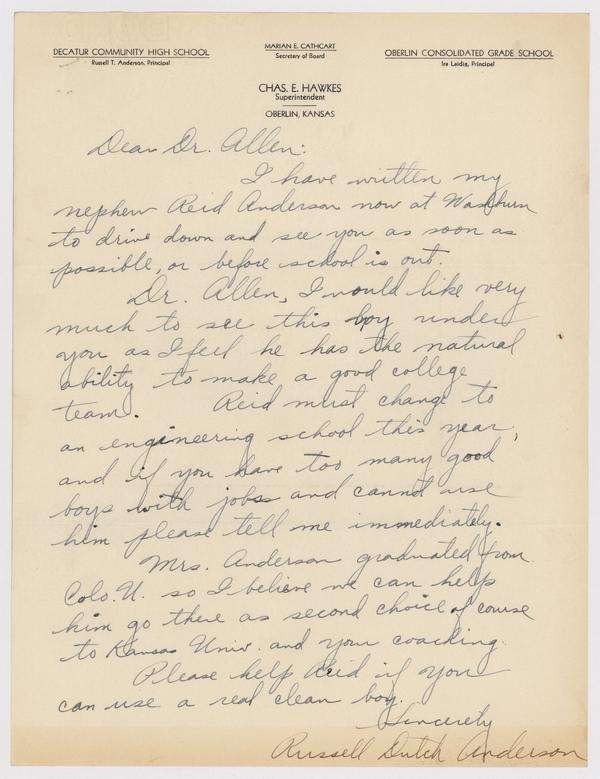 DECATUR COMMUNITY HIGH SCHOOL
Russell T. Anderson, Principal
MARIAN E. CATHCART
Secretary of Board
OBERLIN CONSOLIDATED GRADE SCHOOL
Ira Laidig, Principal
CHAS. E. HAWKES
Superintendent
OBERLIN, KANSAS
Dear Dr. Allen:
I have written my
nephew Reid Anderson now at Washburn
to drive down and see you as soon as
possible, or before school is out.
Dr. Allen, I would like very
much to see this boy under
you as I feel he has the natural
ability to make a good college
team. Reid must change to
an engineering school this year,
and if you have too many good
boys with jobs and cannot use
him please tell me immediately.
Mrs. Anderson graduated from
Colo. U. so I believe we can help
him go there as second choice of course
to Kansas Univ. and your coaching.
Please help Reid if you
can use a real clean boy.
Sincerely
Russell Dutch Anderson